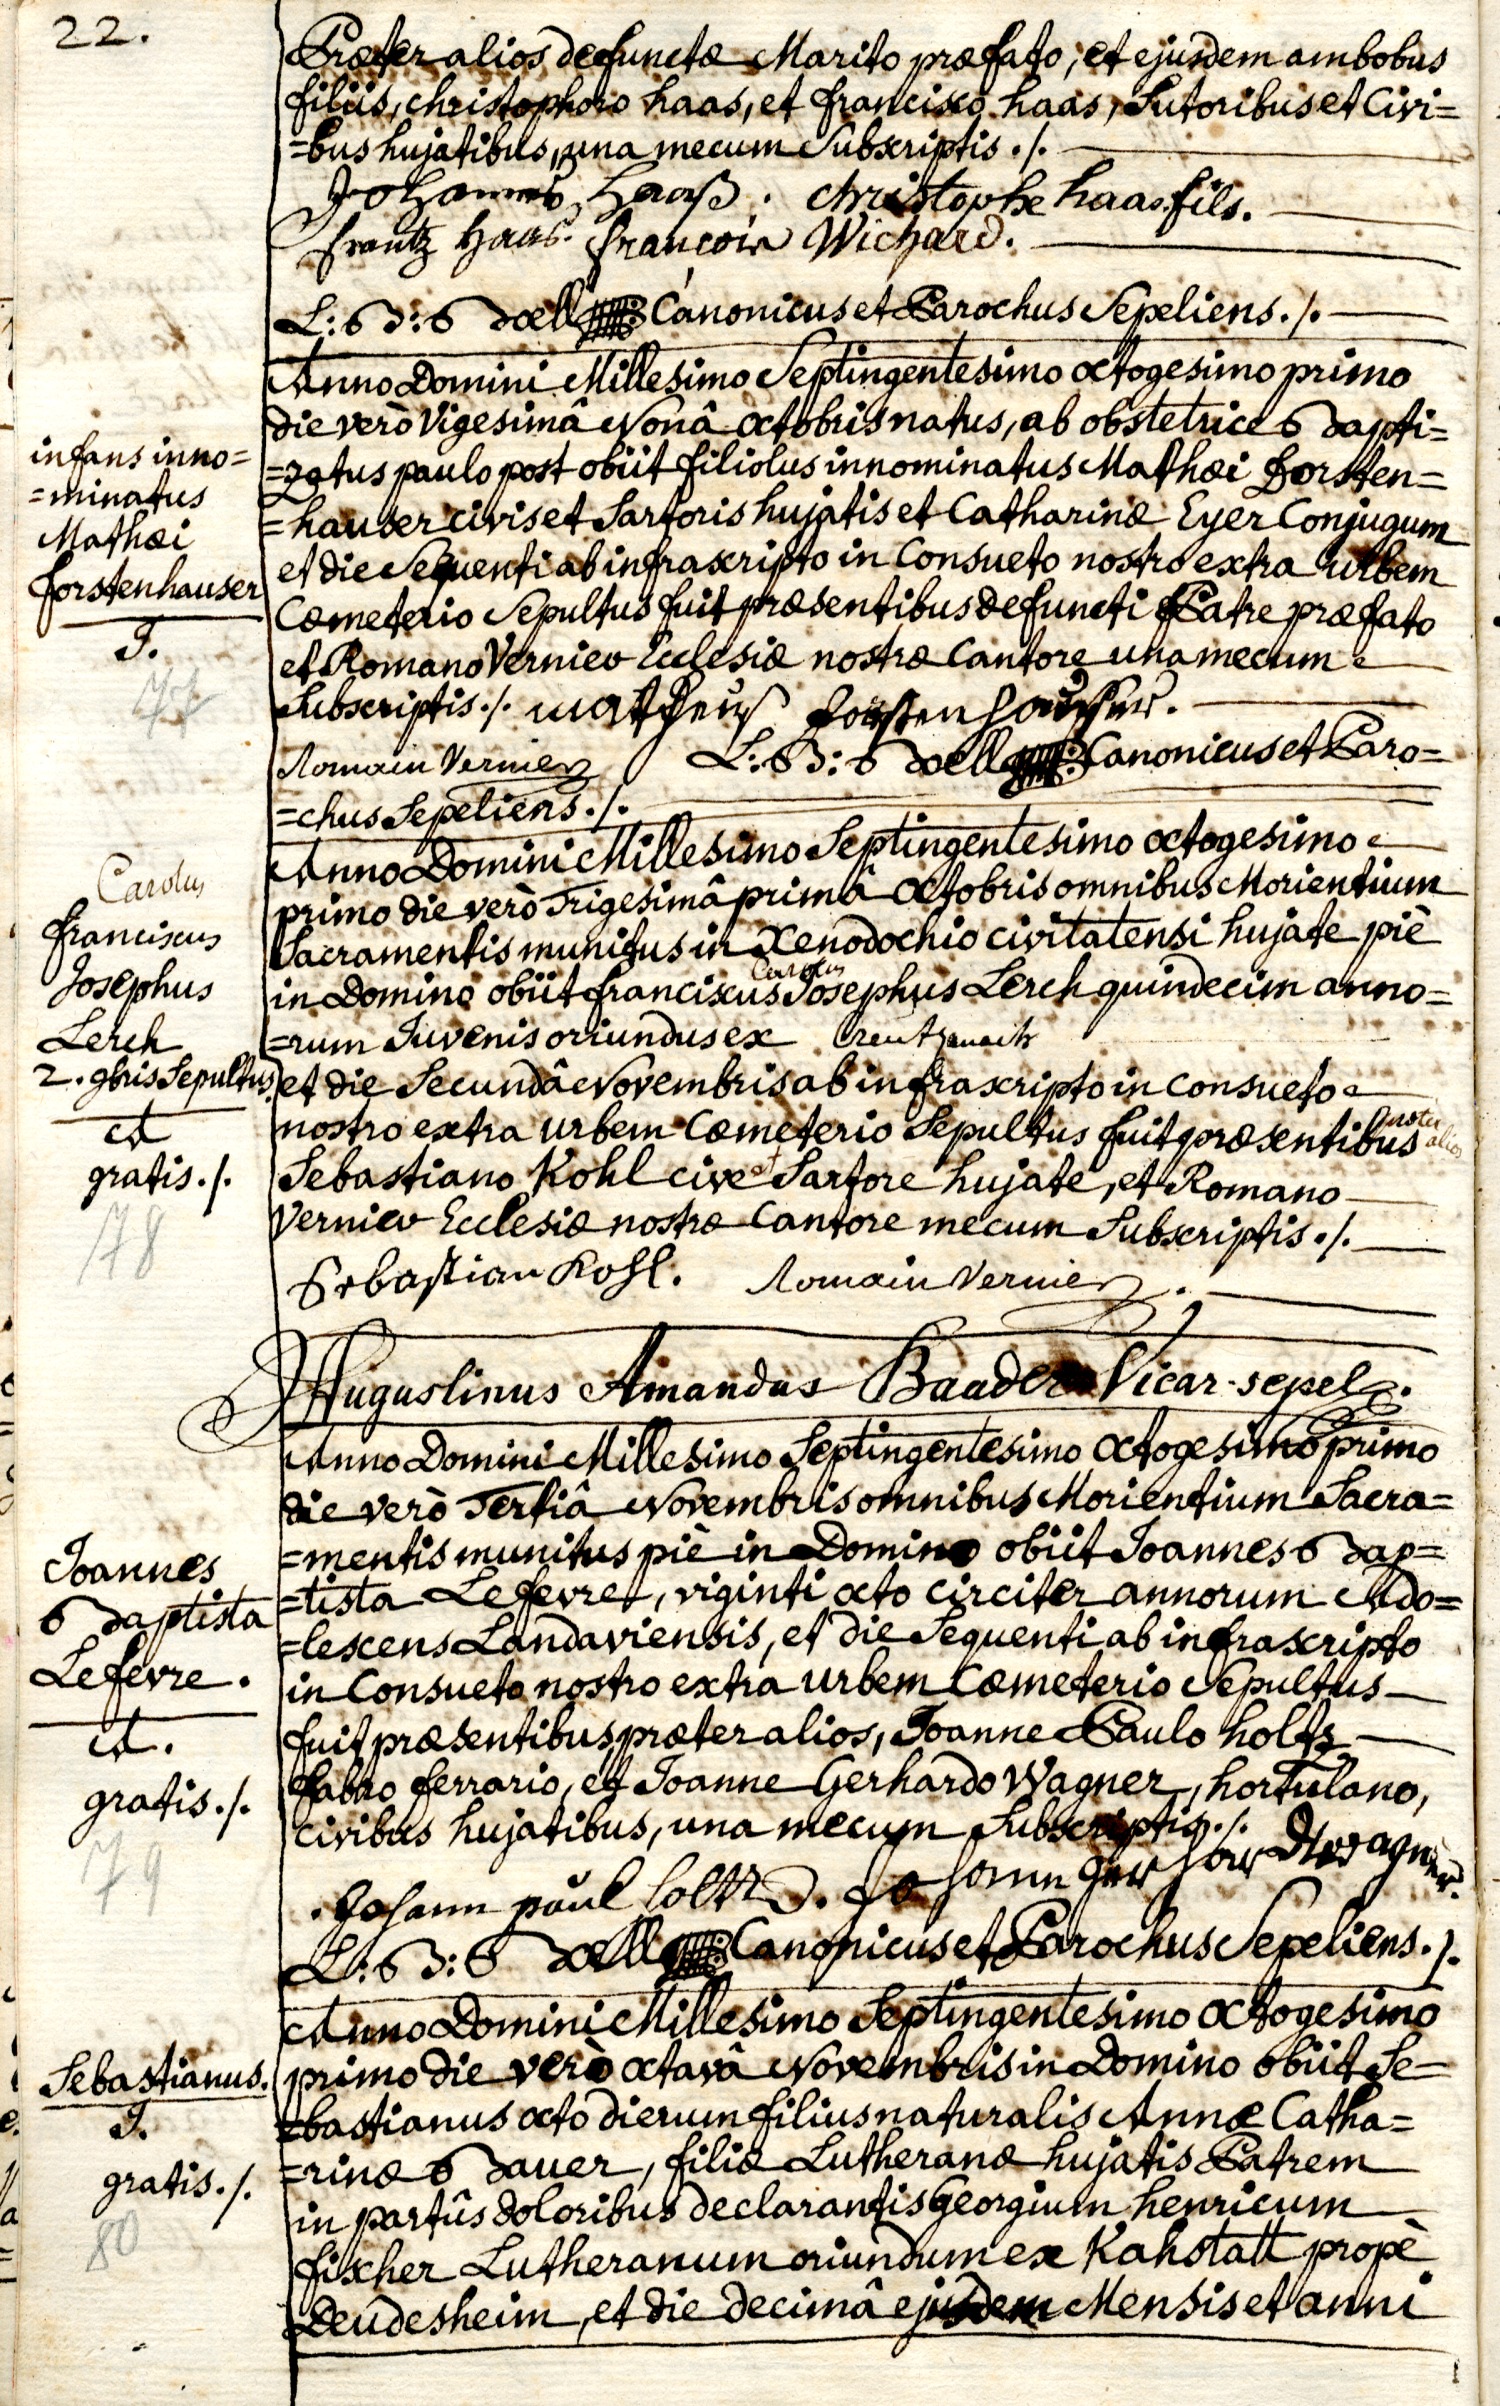 22.
Præter alios defunctæ Marito præfato, et ejusdem ambobus
filiis, christophoro haas, et francisco haas, Sutoribus et Civi=
=bus hujatibus, una mecum Subscriptis ./.
Johannes Haaß. christophe haas fils.
frantz Haas. françois Wichard.
L: B: Boell Canonicus et Parochus Sepeliens ./.
Anno Domini Millesimo Septingentesimo octogesimo primo
die verò Vigesimâ Nonâ octobris natus, ab obstetrice Bapti=
=zatus paulo post obiit filiolus innominatus Mathæi Forsten=
=hauser civis et Sartoris hujatis et Catharinæ Eyer Conjugum
et die Sequenti ab infrascripto in Consueto nostro extra urbem
Cœmeterio Sepultus fuit præsentibus defuncti Patre præfato
et Romano Vernier Ecclesiæ nostræ Cantore una mecum
Subscriptis ./. Matheuß
Romain Vernier L: B: Boell Canonicus et Paro=
=chus Sepeliens ./.
infans inno=
=minatus
Mathæi
forstenhauser
I.
77
Anno Domini Millesimo Septingentesimo octogesimo
primo die verò Trigesimâ primâ octobris omnibus Morientium
Sacramentis munitus in Xenodochio civitatensi hujate piè
Carolus
in Domino obiit franciscus Josephus Lerch quindecim anno=
=rum Iuvenis oriundus ex Creutznach
et die Secundâ Novembris ab infrascripto in consueto
nostro extra urbem Cœmeterio Sepultus fuit præsentibus præter alios
Sebastiano Kohl cive et Sartore hujate, et Romano
Vernier Ecclesiæ nostræ Cantore mecum Subscriptis ./.
Sebastian Kohl. Romain Vernier
Augustinus Amandus Baader Vicar. sepel.
Carolus
franciscus
Josephus
Lerch
2. 9bris Sepultus
A
gratis ./.
78
Anno Domini Millesimo Septingentesimo octogesimo primo
die verò Tertiâ Novembris omnibus Morientium Sacra=
=mentis munitus piè in Domino obiit Joannes Bap=
=tista Lefevre, viginti octo circiter annorum Ado=
=lescens Landaviensis, et die Sequenti ab infrascripto
in Consueto nostro extra urbem Cœmeterio Sepultus
fuit præsentibus, præter alios, Joanne Paulo holtz
fabro ferrario, et Joanne Gerhardo Wagner, hortulano,
civibus hujatibus, una mecum Subscriptis ./.
Johann paul holtz. Johann
L: B: Boell Canonicus et Parochus Sepeliens ./.
Joannes
Baptista
Lefevre.
A.
gratis ./.
79
Anno Domini Millesimo Septingentesimo octogesimo
primo die verò octavâ Novembris in Domino obiit Se=
=bastianus octo dierum filius naturalis Annæ Catha=
=rinæ Bauer, filiæ Lutheranæ hujatis Patrem
in partûs doloribus declarantis Georgium henricum
fischer Lutheranum oriundum ex Kahstatt propè
Deudesheim, et die decimâ ejusdem Mensis et anni
Sebastianus.
I.
gratis ./.
80